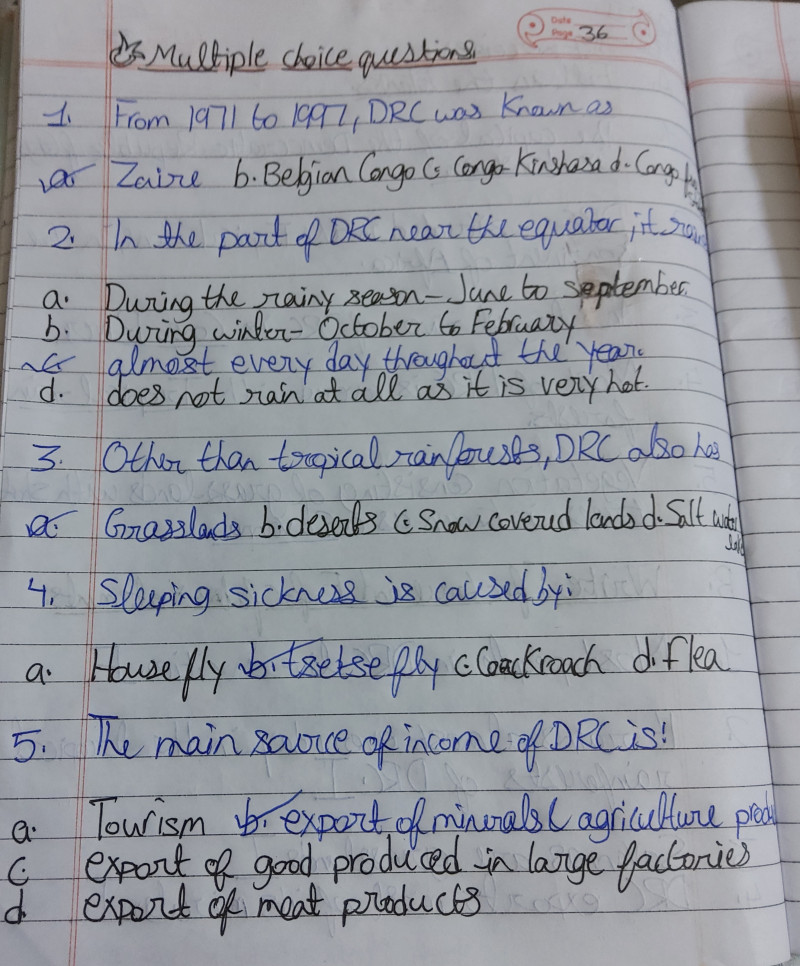 Date
Page 36
Multiple choice questions
1. From 1971 to 1997, DRC was Known as
a. Zaire b. Belgian Congo c. Congo-Kinshasa d. Congo
2. In the part of DRC near the equator, it
a. During the rainy season - June to september.
b. During winter - October to February
c. almost every day throughout the year.
d. does not rain at all as it is very hot.
3. Other than tropical rainforests, DRC also has
a. Grasslads b. deserts c. Snow covered lands d. Salt
4. Sleeping sickness is caused by:
a. House fly b. tsetse fly c. Coackroach d. flea
5. The main source of income of DRC is!
a. Tourism b. export of minerals ( agriculture
c. export of good produced in large factories
d export of meat products